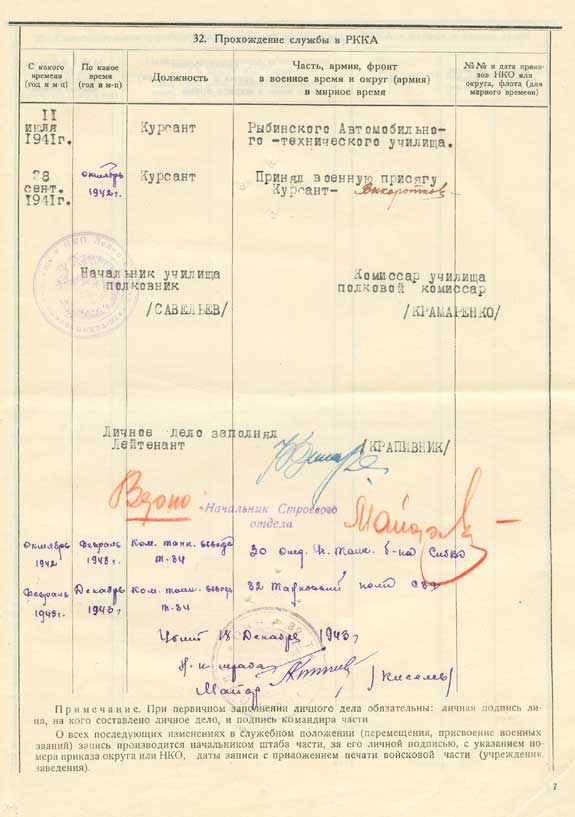 32. Прохождение службы в РККА
С какого времени (год и м-ц)
По какое время (год и м-ц)
Должность
Часть, армия, фронт
в военное время и округ (армия)
в мирное время
№№ и дата приказов НКО или округа, флота (для мирного времени)
11 июля 1941г.
Курсант
Рыбинского Автомобильно-
го -технического училища.
28 сент. 1941г.
октябрь 1942г.
Курсант
Принял военную присягу
Курсант-
Начальник училища
полковник
/САВЕЛЬЕВ/
Комиссар училища
полковой комиссар
/КРАМАРЕНКО/
Личное дело заполнял
Лейтенант
/КРАПИВНИК/
Начальник Строевого
отдела
Октябрь 1942
Февраль 1943г.
Ком. танк. взвода
Т-34
30 отд. танк. б-на СибВО
Февраль 1943г.
Декабрь 1943г.
Ком. танк. взвода
Т-34
32 полк
18 Декабря 1943г.
Н-к штаба
Майор
/Киселев/
Примечание. При первичном заполнении личного дела обязательны: личная подпись ли-
ца, на кого составлено личное дело, и подпись командира части
О всех последующих изменениях в служебном положении (перемещения, присвоение военных
званий) запись производится начальником штаба части, за его личной подписью, с указанием но-
мера приказа округа или НКО, даты записи с приложением печати войсковой части (учреждения,
заведения).
7